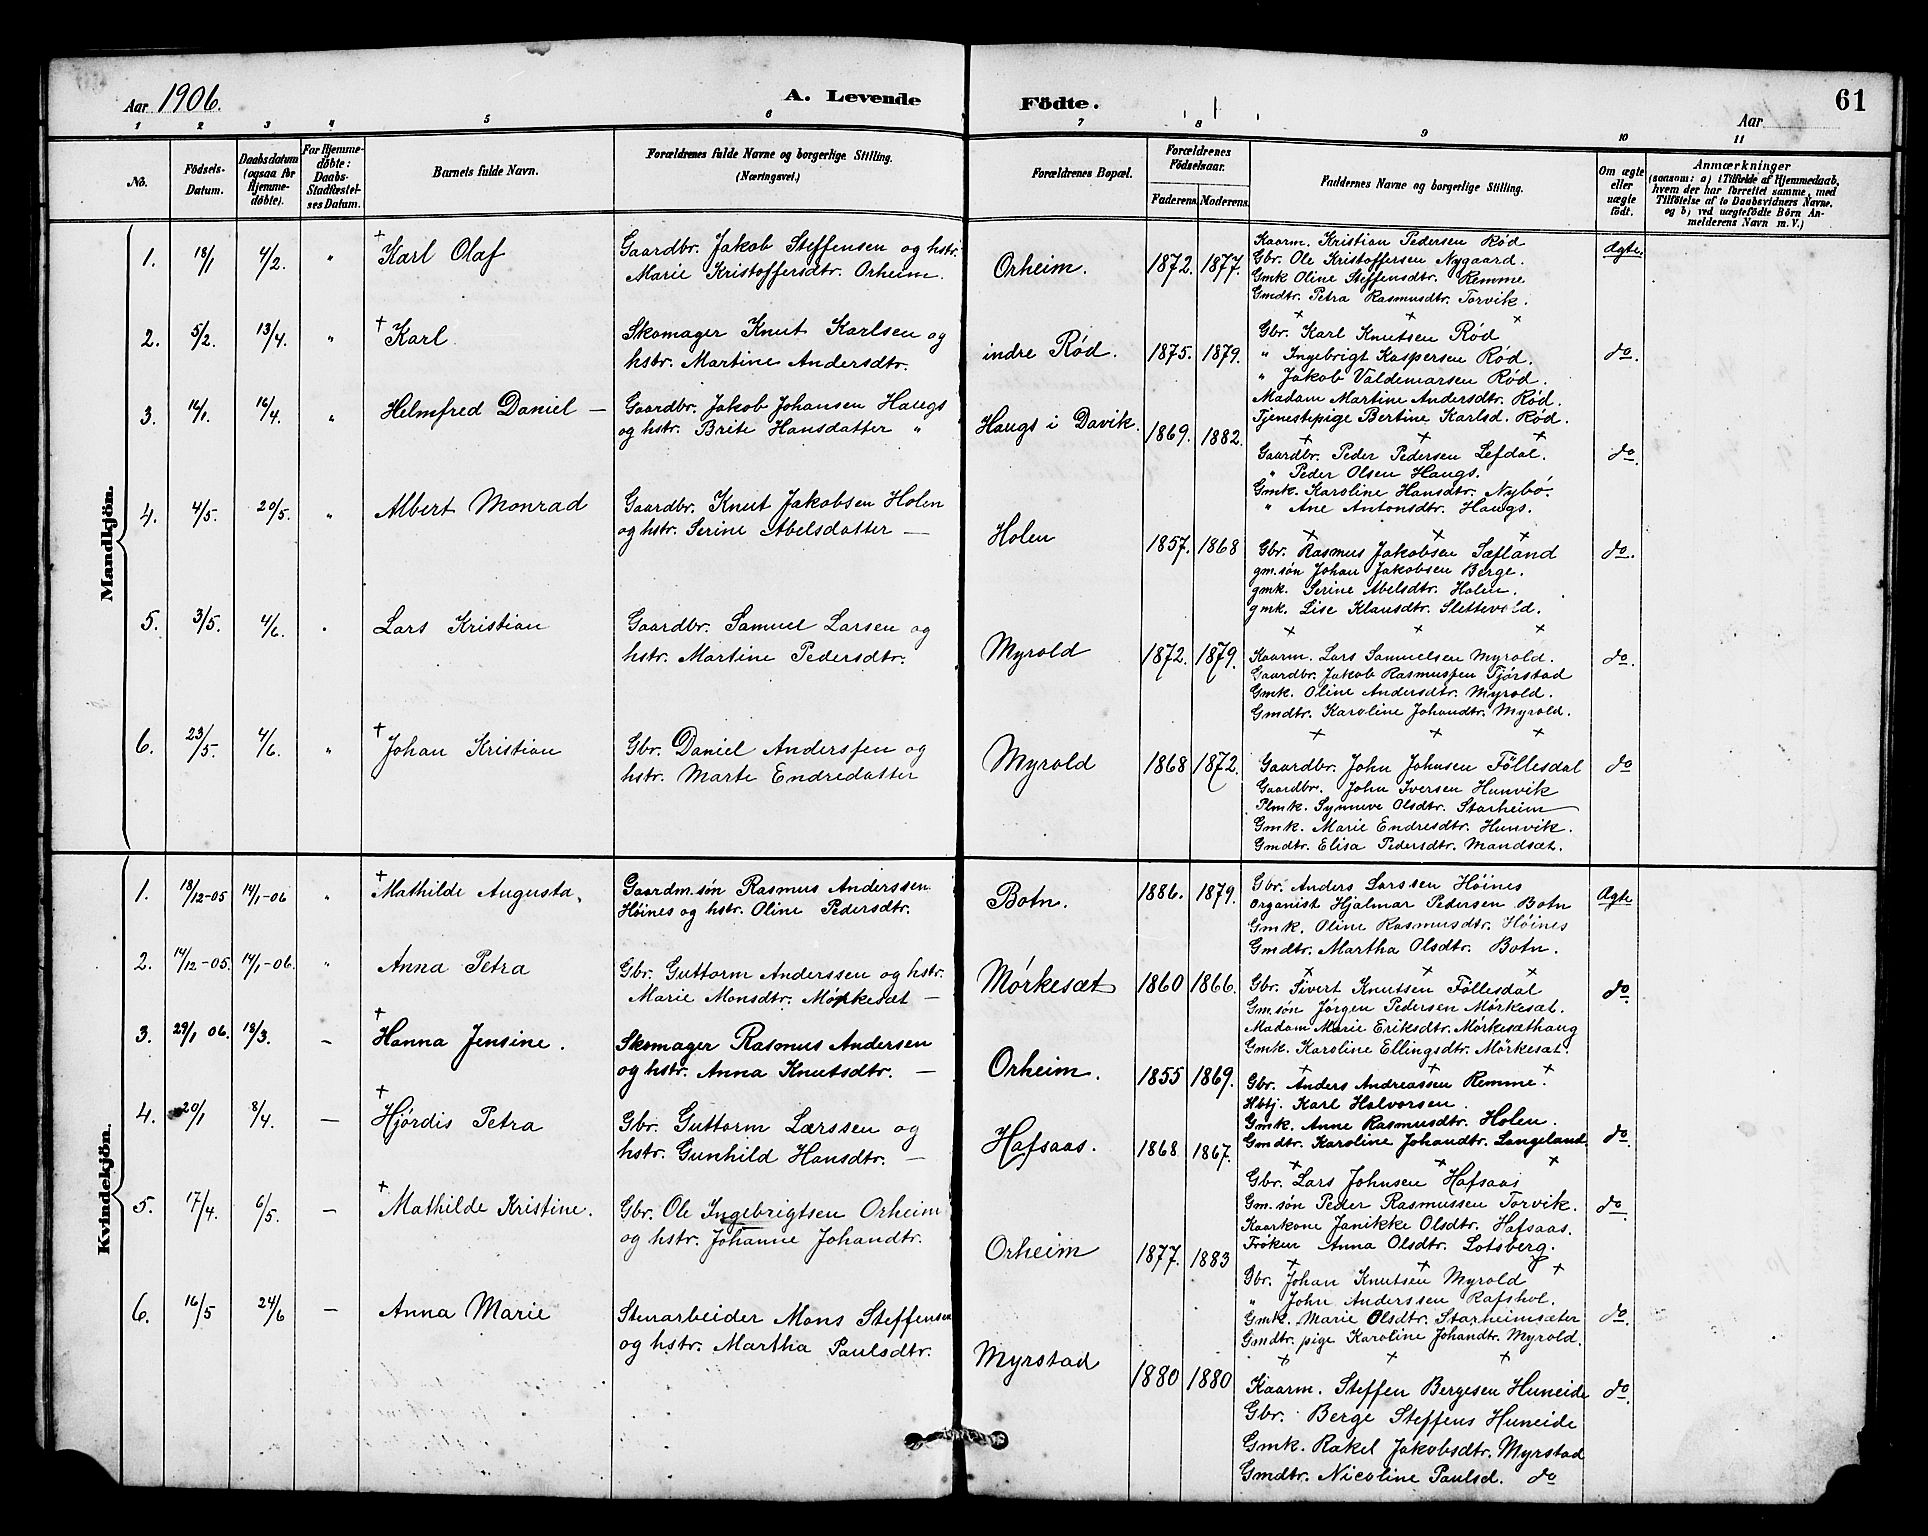 Aar 1906.
A. Levende Födte.
Aar
61
1 2 3 4 5 6 7 8 9 10 11
No.
Födsels-
Datum.
Daabsdatum
(ogsaa for
Hjemme-
döbte).
For Hjemme-
döbte:
Daabs-
Stadfæstel-
ses Datum.
Barnets fulde Navn.
Forældrenes fulde Navne og borgerlige Stilling.
(Næringsvei.)
Forældrenes Bopæl.
Forældrenes
Födselsaar.
Faderens. Moderens.
Faddernes Navne og borgerlige Stilling.
Om ægte
eller
uægte
födt.
Anmærkninger
(saasom: a) i Tilfælde af Hjemmedaab,
hvem der har forrettet samme, med
Tilföielse af to Daabsvidners Navne.
og b) ved uægtefödte Börn An-
melderens Navn m. V.)
Mandkjön.
1. 18/1 4/2. " † Karl Olaf
Gaardbr. Jakob Steffensen og hstr.
Marie Kristoffersdtr. Orheim.
Orheim. 1872. 1877.
Kaarm. Kristian Pedersen Rød
Gbr. Ole Kristoffersen Nygaard.
Gmk Oline Steffensdtr. Remme
Gmdtr. Petra Rasmusdtr. Torvik.
ægte.
+ + +
2. 5/2. 13/4. " † Karl
Skomager Knut Karlsen og
hstr. Martine Andersdtr.
indre Rød. 1875. 1879.
Gbr. Karl Knutsen Rød
" Ingebrigt Kaspersen Rød.
" Jakob Valdemarsen Rød.
Madam Martine Andersdtr. Rød.
Tjenestepige Bertine Karlsd. Rød.
do.
+ + +
3. 14/1. 16/4. " Helmfred Daniel —
Gaardbr. Jakob Johansen Haugs
og hstr. Brite Hansdatter "
Haugs i Davik. 1869. 1882.
Gaardbr. Peder Pedersen Lefdal.
" Peder Olsen Haugs.
Gmk. Karoline Hansdtr. Nybö.
" Ane Antonsdtr. Haugs.
do.
+ + +
4. 4/5. 20/5. " Albert Monrad
Gaardbr. Knut Jakobsen Holen
og hstr. Serine Abelsdatter —
Holen 1857. 1868
Gbr. Rasmus Jakobsen Sæfland
gm.søn Johan Jakobsen Berge.
gmk. Serine Abelsdtr. Holen.
gmk. Lise Klausdtr. Slettevold.
do.
+ + +
5. 3/5. 4/6. " Lars Kristian
Gaardbr. Samuel Larsen og
hstr. Martine Pedersdtr.
Myrold 1872. 1879.
Kaarm. Lars Samuelsen Myrold.
Gaardbr. Jakob Rasmussen Fjørstad
Gmk. Oline Andersdtr. Myrold.
Gmdtr. Karoline Johandtr. Myrold.
do.
+ + +
6. 23/5. 4/6. " † Johan Kristian
Gbr. Daniel Anderssen og
hstr. Marte Endredatter
Myrold 1868 1872.
Gaardbr. John Johnsen Föllesdal
Gaardbr. John Iversen Hunvik
Plmk. Synneve Olsdtr. Starheim
Gmk. Marie Endresdtr. Hunvik.
Gmdtr. Elisa Pedersdtr. Mandsæt.
do
Kvindekjön.
1. 18/12-05 14/1-06 " † Mathilde Augusta.
Gaardm.søn Rasmus Anderssen
Höines og hstr. Oline Pedersdtr.
Botn. 1886. 1879.
Gbr. Anders Larssen Höines
Organist Hjalmar Pedersen Botn
Gmk. Oline Rasmusdtr. Höines
Gmdtr. Martha Olsdtr. Botn.
Ægte
+ + +
2. 14/12-05. 14/1-06. " Anna Petra
Gbr. Guttorm Anderssen og hstr.
Marie Monsdtr. Mørkesæt —
Mørkesæt 1860 1866.
Gbr. Sivert Knutsen Föllesdal
Gm.søn Jørgen Pedersen Mörkesæt.
Madam Marie Eriksdtr. Mörkesæthaug
Gmk. Karoline Ellingsdtr. Mörkesæt.
do.
+ + +
3. 29/1 06. 18/3. — † Hanna Jensine.
Skomager Rasmus Andersen
og hstr. Anna Knutsdtr. —
Orheim. 1855 1869.
Gbr. Anders Andreassen Remme.
Hbtj. Karl Halvorsen.
Gmk. Anne Rasmusdtr. Holen.
Gmdtr. Karoline Johandtr. Langeland.
do.
+ + +
4. 20/1 8/4. — † Hjördis Petra
Gbr. Guttorm Larssen og
hstr. Gunhild Hansdtr. —
Hafsaas. 1868 1867.
Gbr. Lars Johnsen Hafsaas
Gm.søn Peder Rasmussen Torvik.
Kaarkone Janikke Olsdtr. Hafsaas.
Frøken Anna Olsdtr. Lotsberg.
do.
+ + +
5. 17/4. 6/5. — † Mathilde Kristine.
Gbr. Ole Ingebrigtsen Orheim
og hstr. Johanne Johandtr.
Orheim 1877. 1883
Gbr. Johan Knutsen Myrold
" John Anderssen Rafshol.
Gmk. Marie Olsdtr. Starheimsæter
Gmdtr. pige Karoline Johandtr. Myrold.
do.
+ + +
6. 16/5 24/6 — Anna Marie
Stenarbeider Mons Steffensen
og hstr. Martha Paulsdtr.
Myrstad 1880 1880
Kaarm. Steffen Bergesen Huneide
Gbr. Berge Steffens Huneide
Gmk. Rakel Jakobsdtr. Myrstad
Gmdtr. Nicoline Paulsd. do
do.